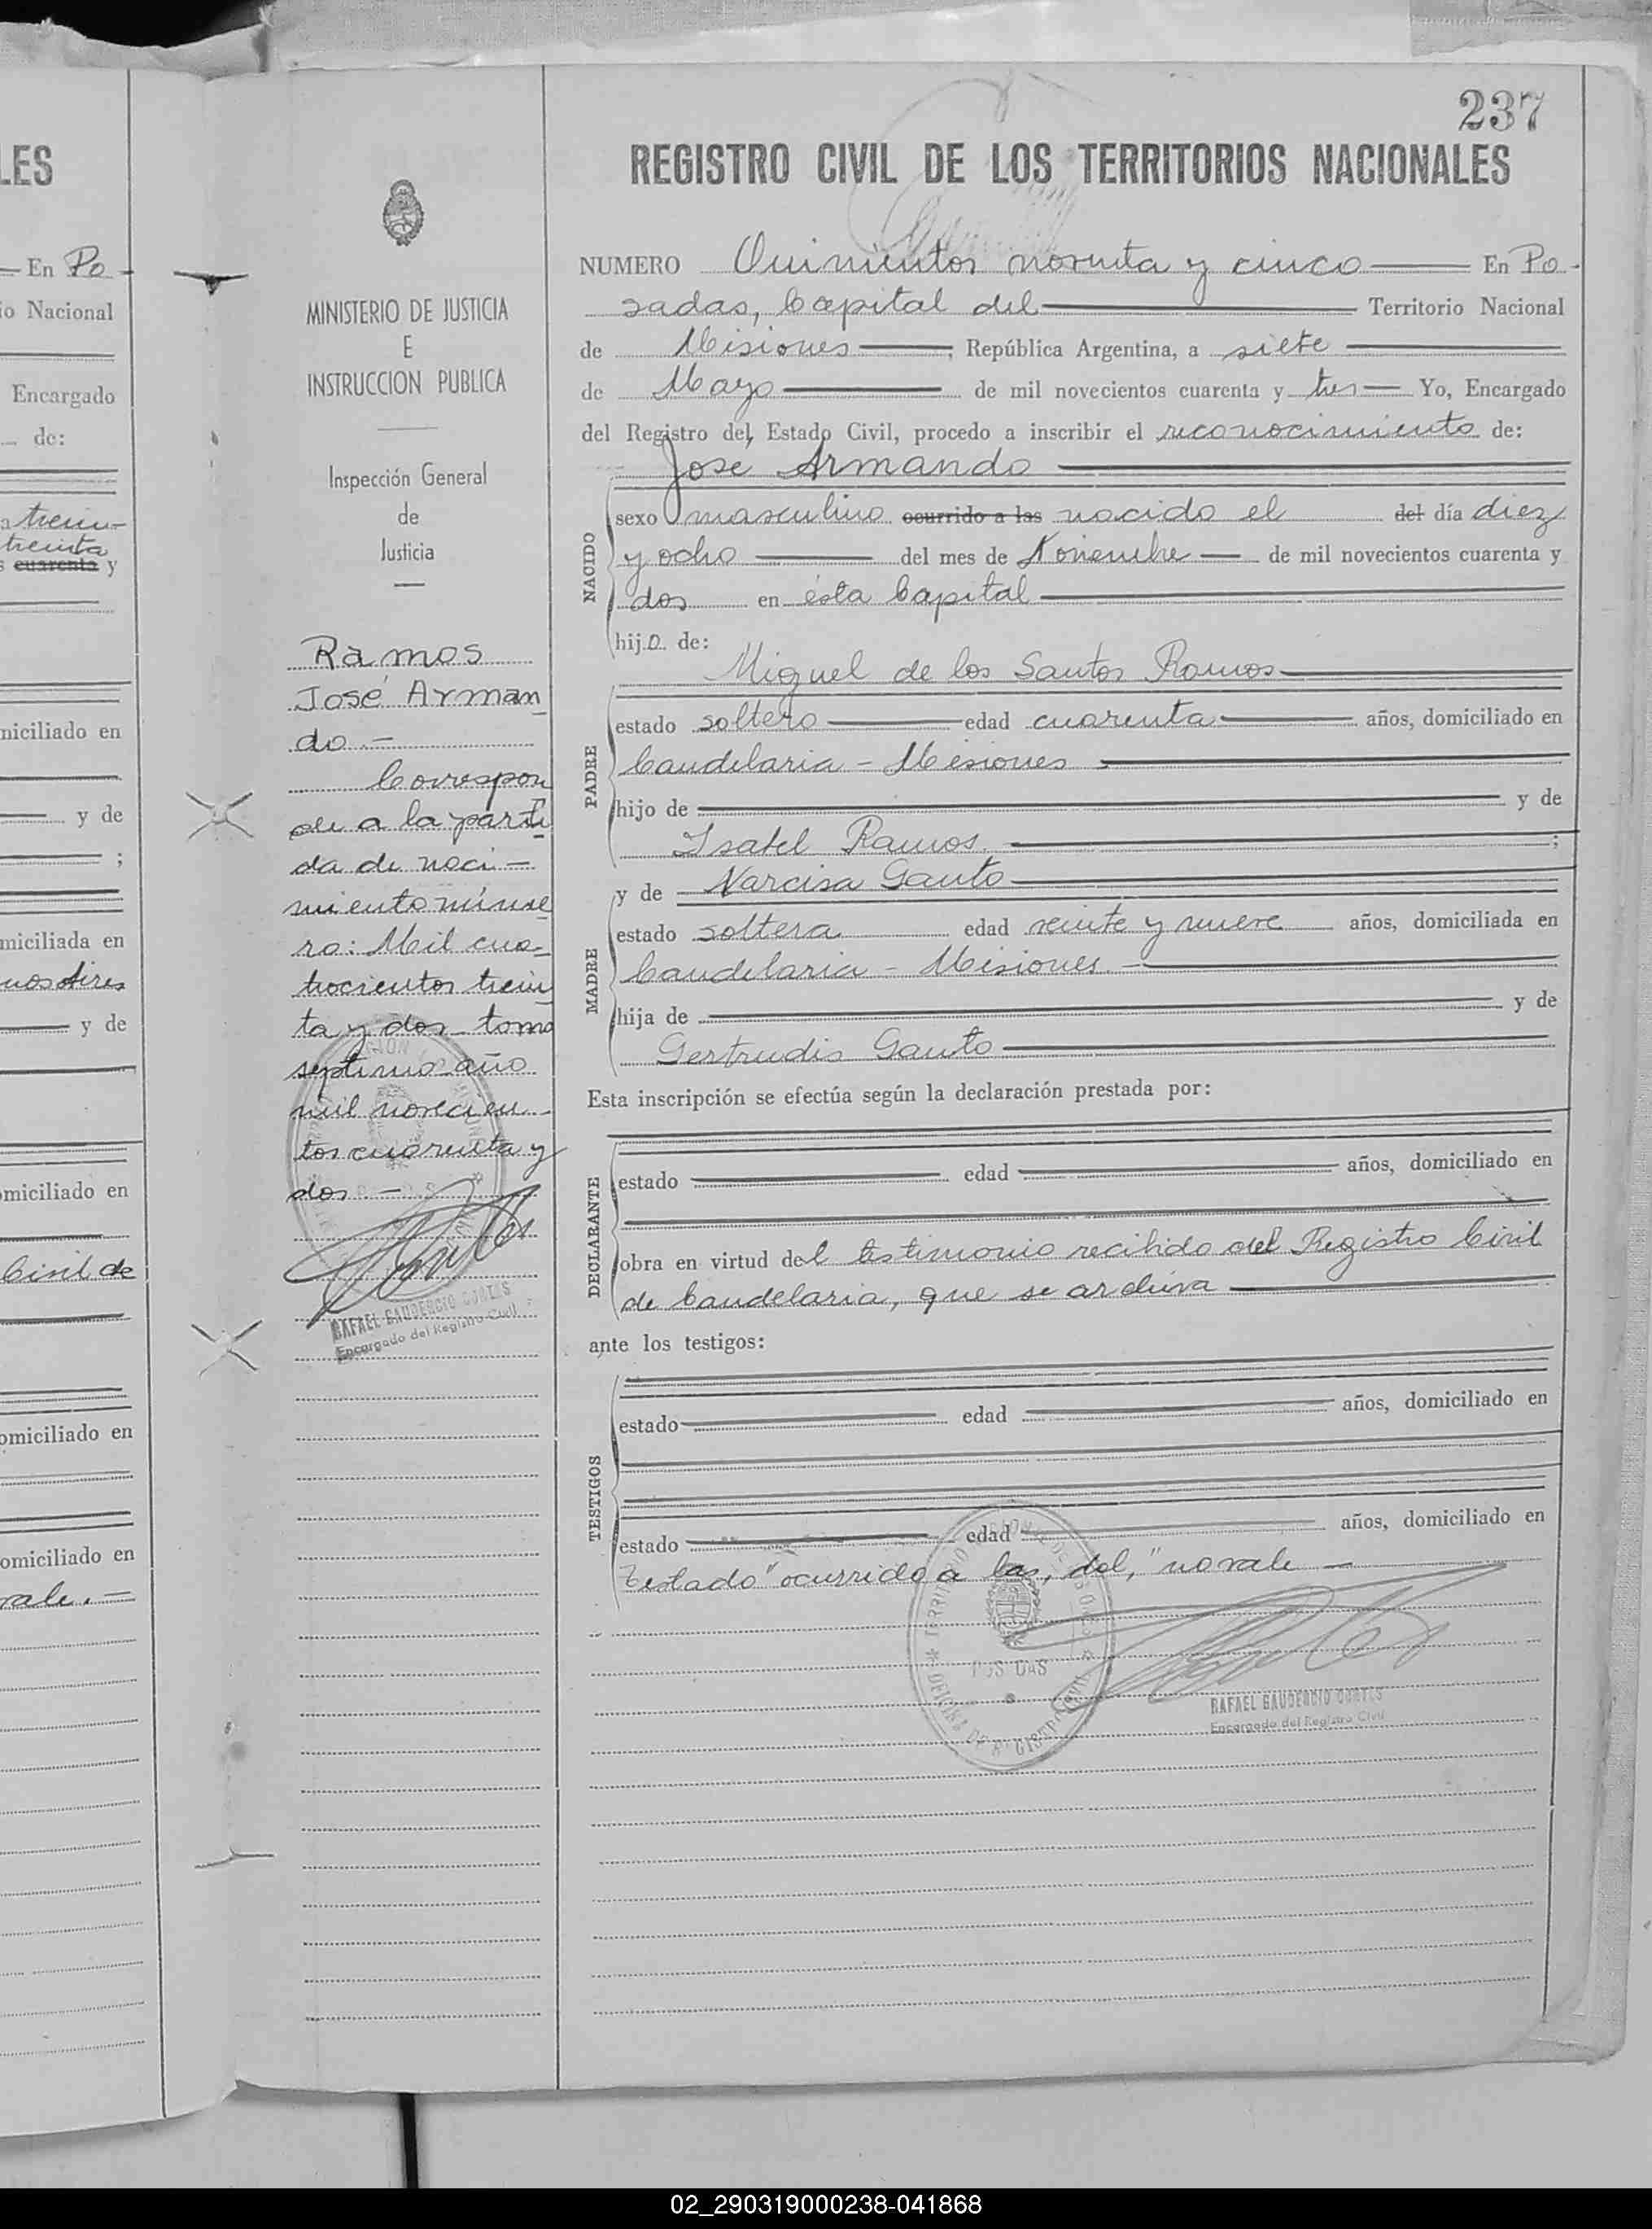 LES
En Po-
io Nacional
Encargado
de:
a trein-
treinta
s cuarenta y
miciliado en
y de
;
miciliada en
nos Aires
y de
omiciliado en
Civil de
omiciliado en
omiciliado en
vale.
MINISTERIO DE JUSTICIA
E
INSTRUCCION PUBLICA
Inspección General
de
Justicia
Ramos
José Arman
do.-
Correspon
de a la parti
da de naci-
miento núme
ro: Mil cua-
trocientos trein
ta y dos tomo
septimo año
mil novecien-
tos cuarenta y
dos.-
RAFAEL GAUDENCIO CORTES
Encargado del Registro Civil
237
REGISTRO CIVIL DE LOS TERRITORIOS NACIONALES
NUMERO Quinientos noventa y cinco En Po-
sadas, Capital del Territorio Nacional
de Misiones; República Argentina, a siete
de Mayo de mil novecientos cuarenta y tres Yo, Encargado
del Registro del Estado Civil, procedo a inscribir el reconocimiento de:
José Armando
NACIDO
sexo masculino ocurrido a las nacido el del día diez
y ocho del mes de Noviembre de mil novecientos cuarenta y
dos en ésta Capital
hijo de:
Miguel de los Santos Ramos
PADRE
estado soltero edad cuarenta años, domiciliado en
Candelaria - Misiones
hijo de y de
Isabel Ramos. ;
y de Narcisa Gauto
MADRE
estado soltera edad veinte y nueve años, domiciliada en
Candelaria - Misiones.
hija de y de
Gertrudis Gauto
Esta inscripción se efectúa según la declaración prestada por:
DECLARANTE
estado edad años, domiciliado en
obra en virtud del testimonio recibido del Registro Civil
de Candelaria, que se archiva
ante los testigos:
TESTIGOS
estado edad años, domiciliado en
estado edad años, domiciliado en
Testado "ocurrido a las, del," no vale
RAFAEL GAUDENCIO CORTES
Encargado del Registro Civil
02_290319000238-041868